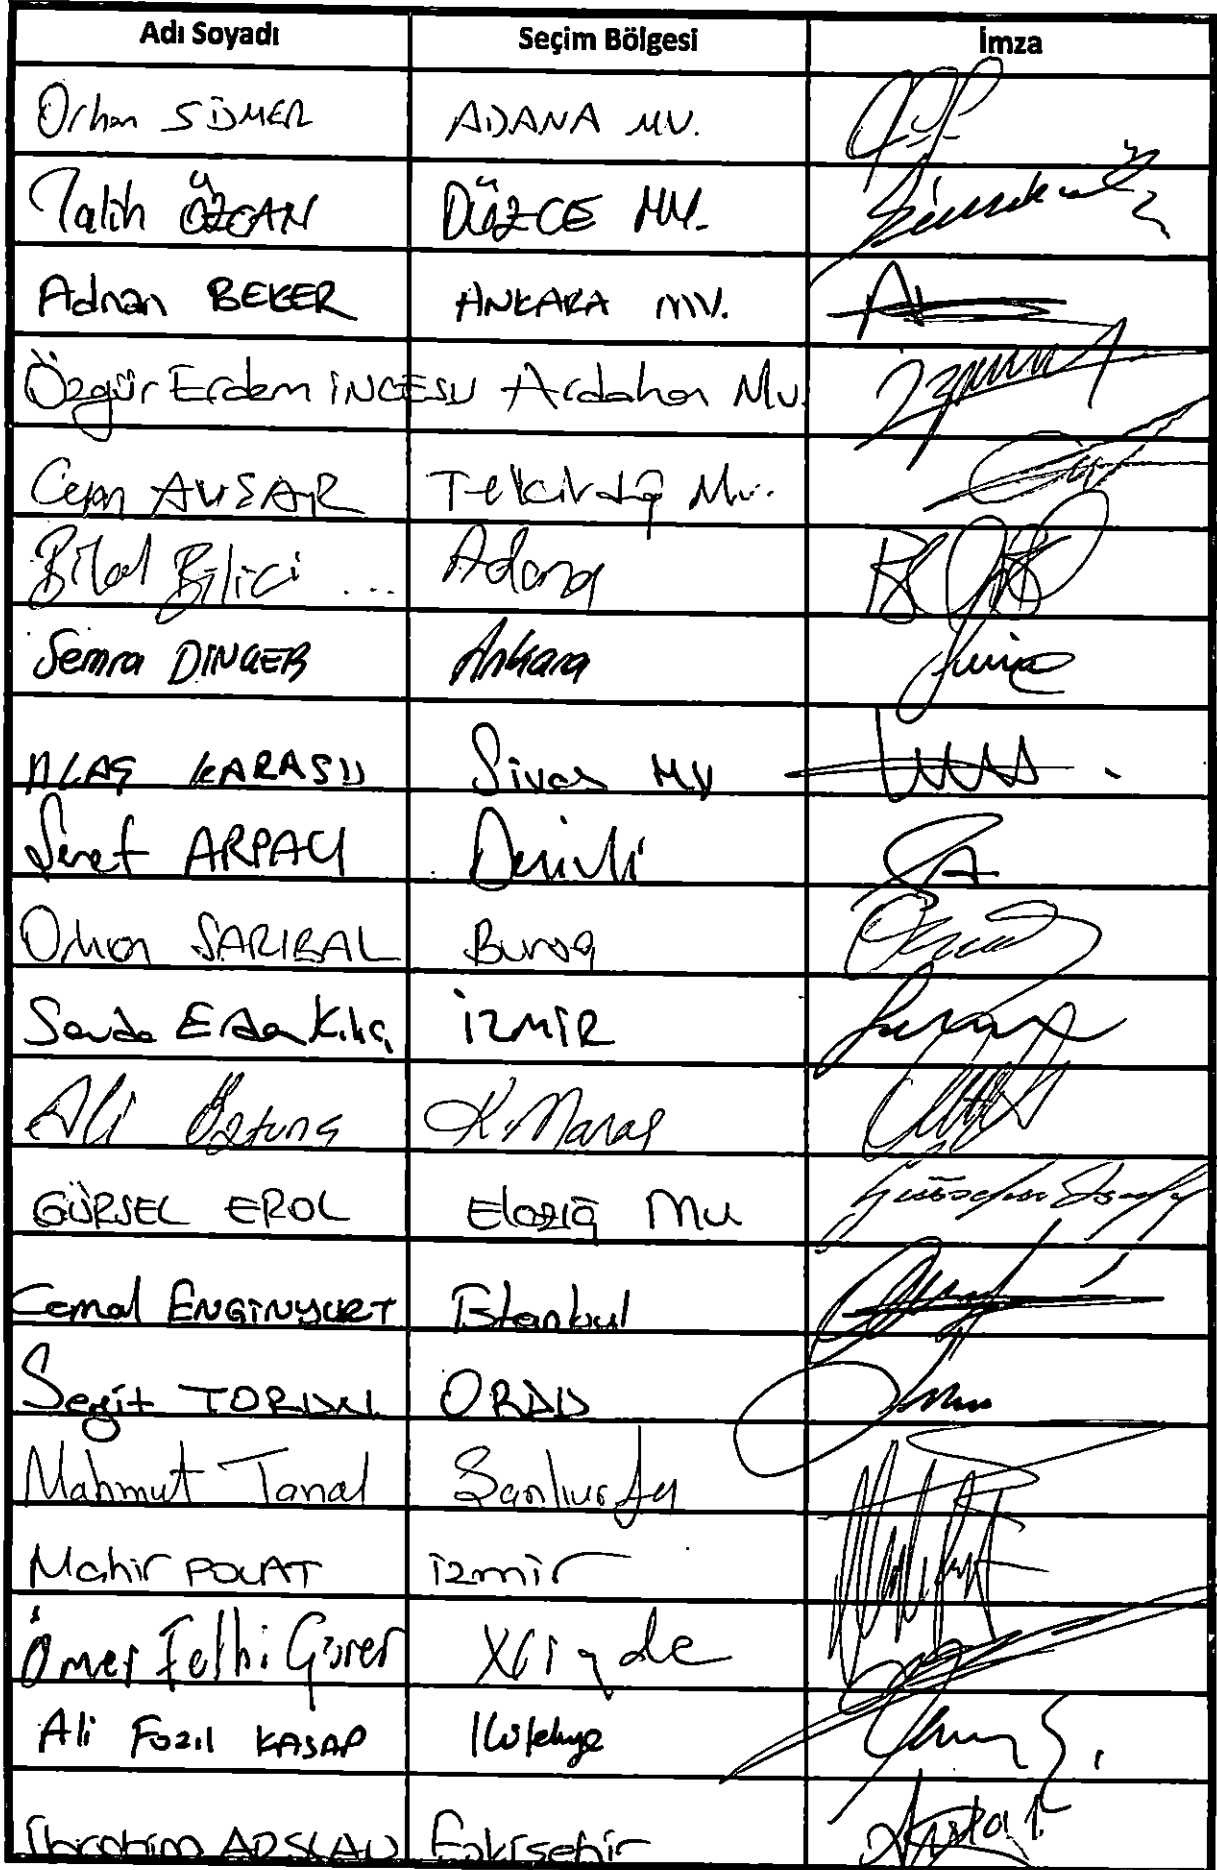 Adı Soyadı Seçim Bölgesi İmza
Orhan SÜMER ADANA MV.
Talih ÖZCAN DÜZCE MV.
Adnan BEKER ANKARA MV.
Özgür Erdem İNCESU Ardahan Mv.
Cem AVŞAR Tekirdağ Mv.
Bilal Bilici ... Adana
Semra DİNÇER Ankara
ULAŞ KARASU Sivas MV
Şeref ARPACI Denizli
Orhan SARIBAL Bursa
Sevda Erdan Kılıç İZMİR
Ali Öztunç K.Maraş
GÜRSEL EROL Elazığ Mv
Cemal ENGİNYURT İstanbul
Seyit TORUN ORDU
Mahmut Tanal Şanlıurfa
Mahir POLAT izmir
Ömer Fethi Gürer Niğde
Ali Fazıl KASAP Kütahya
İbrahim ARSLAN Eskişehir